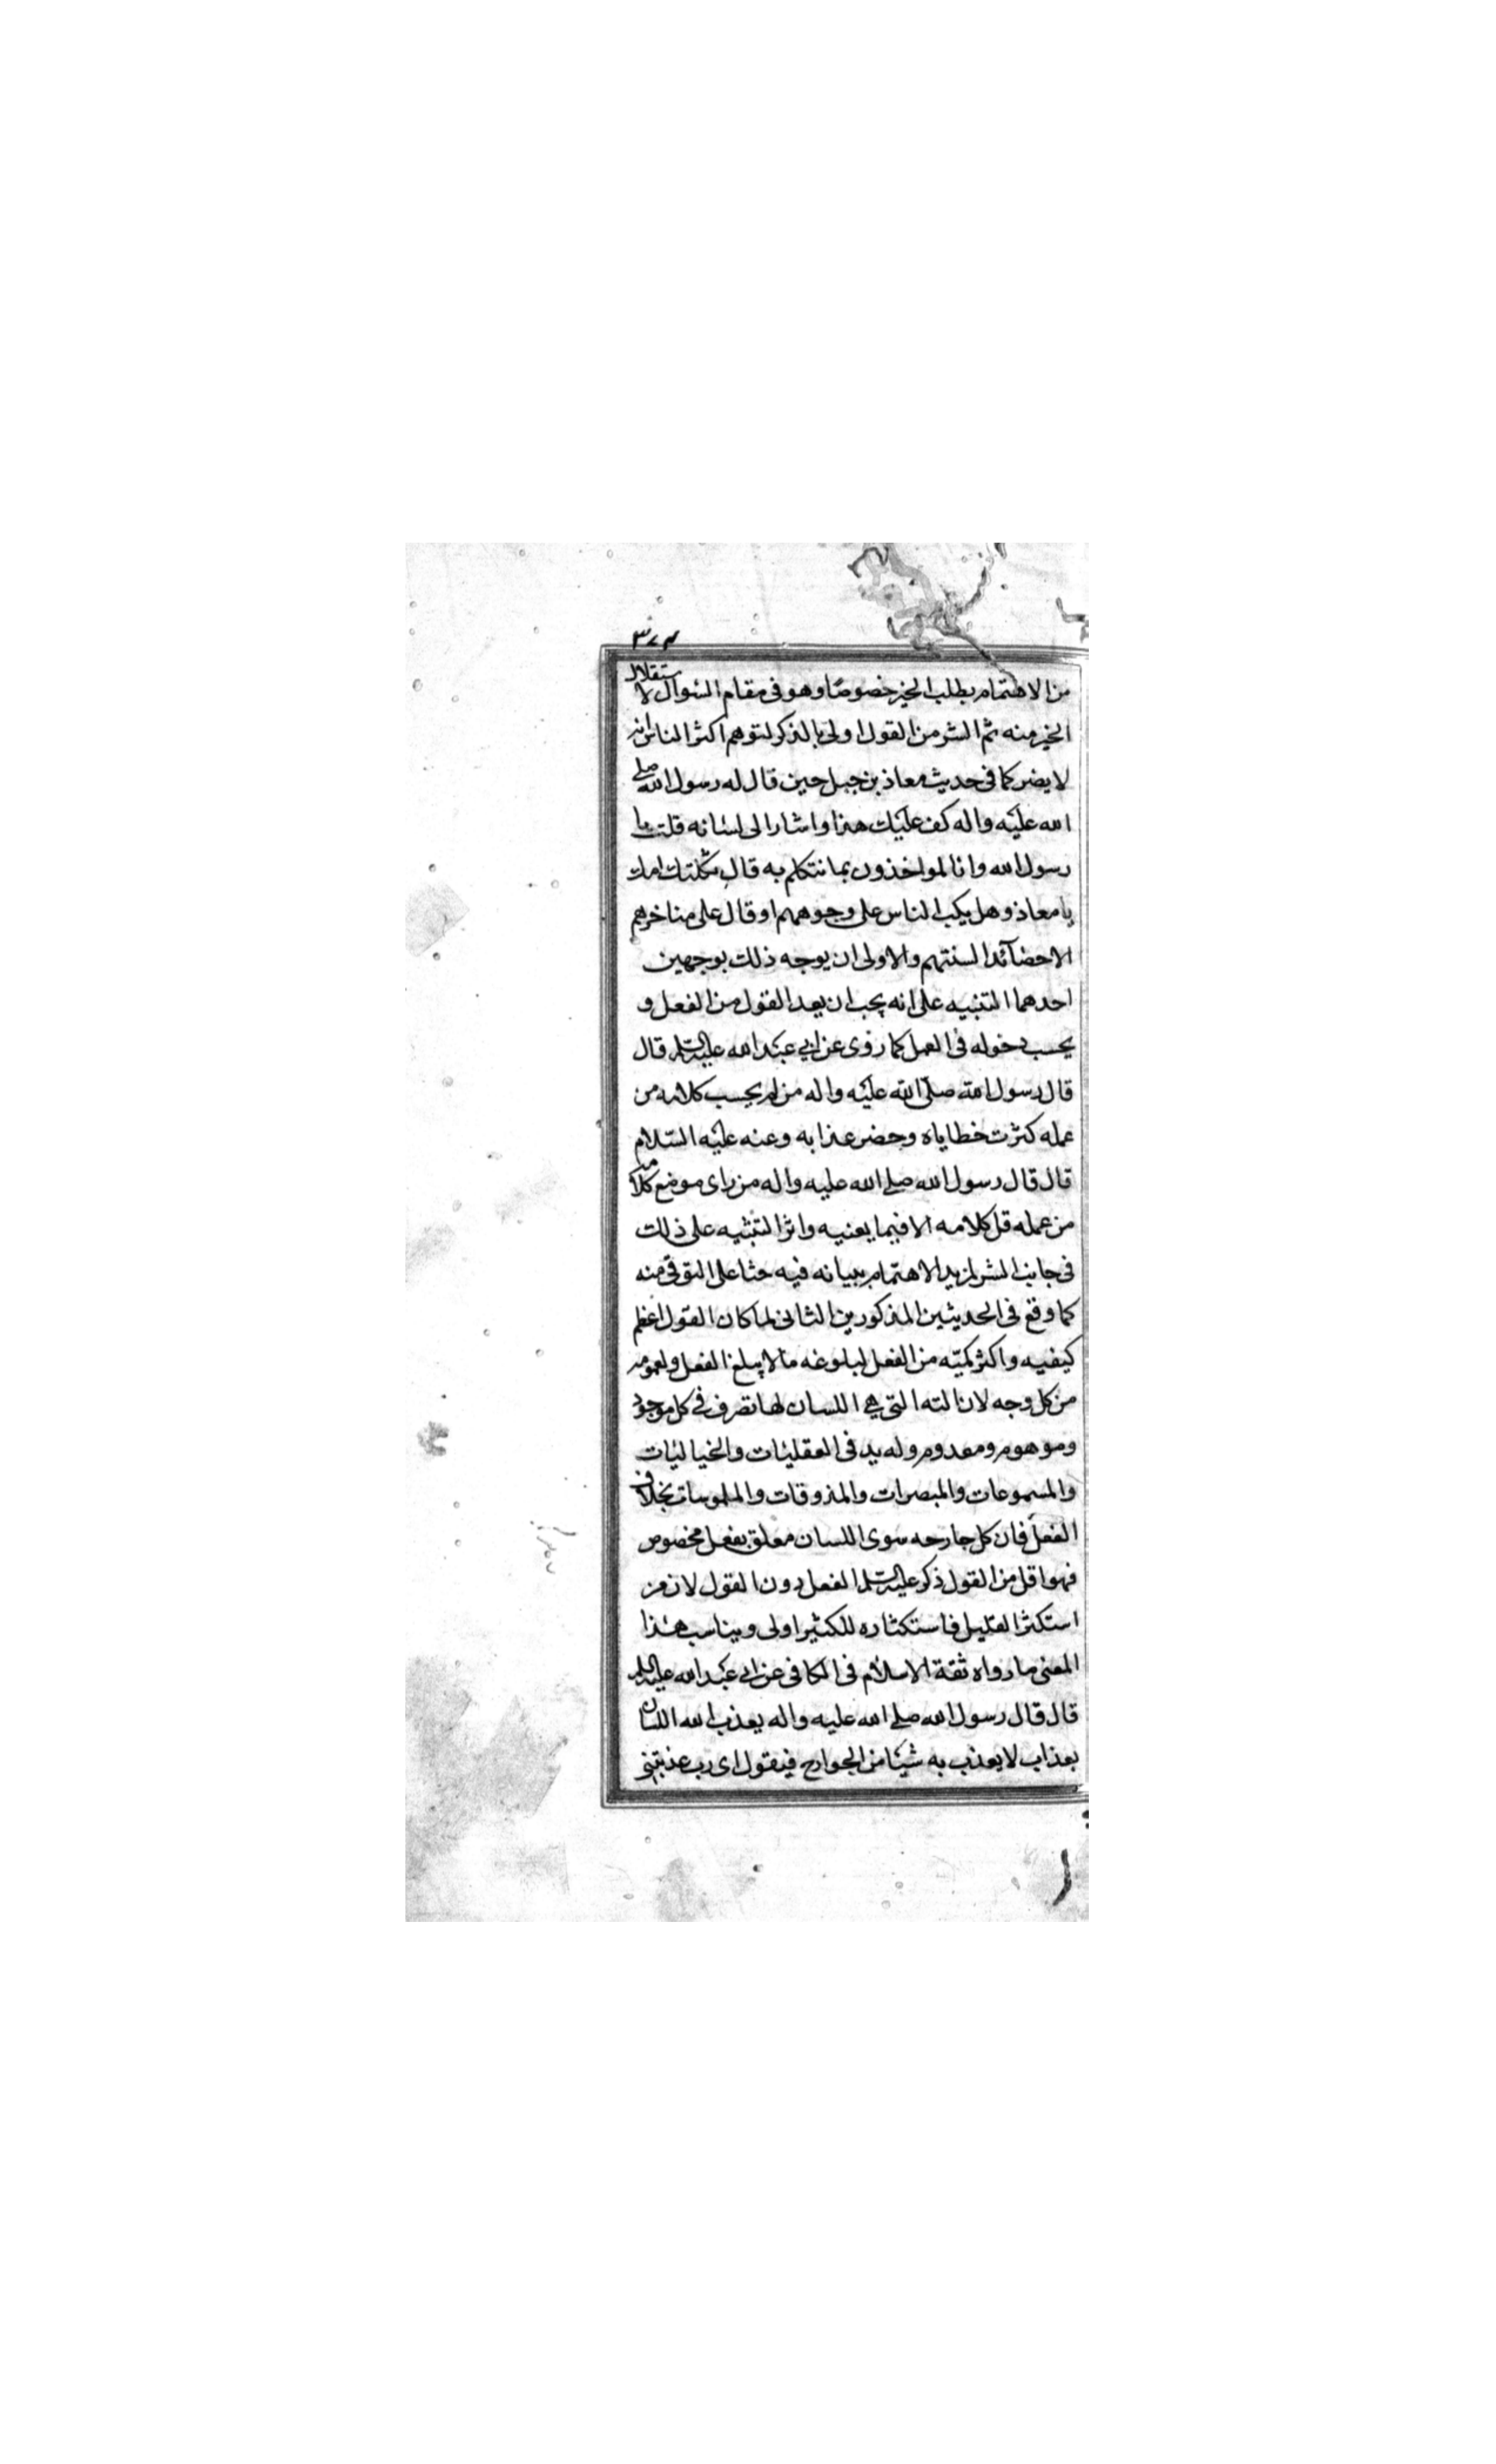 من الاهتمام بطلب الخير خصوصًا وهو فى مقام السؤال لاستقلال
الخير منه ثم الشر من القول اولى بالذكر لتوهم اكثر الناس انه
لا يضر كما فى حديث معاذ بن جبل حين قال له رسول الله صلى
الله عليه واله كف عليك هذا واشار الى لسانه قلت يا
رسول الله وانا لمواخذون بما نتكلم به قال ثكلتك امك
يا معاذ وهل يكب الناس على وجوههم او قال على مناخرهم
الا حصائد السنتهم والاولى ان يوجه ذلك بوجهين
احدهما التنبيه على انه يجب ان يعد القول من الفعل و
يحسب دخوله فى العمل كما روى عن ابي عبد الله عليه السلم قال
قال رسول الله صلى الله عليه واله من لم يحسب كلامه من
عمله كثرت خطاياه وحضر عذابه وعنه عليه السلام
قال قال رسول الله صلى الله عليه واله من راى موضع كلامه
من عمله قل كلامه الا فيما يعنيه واثر التنبيه على ذلك
فى جانب الشر لمزيد الاهتمام ببيانه فيه حثا على التوقى منه
كما وقع فى الحديثين المذكورين الثانى لما كان القول اعظم
كيفيه واكثر كميّه من الفعل لبلوغه ما لا يبلغ الفعل ولعمومه
من كل وجه لان الته التى هي اللسان لها تصرف فى كل موجود
وموهوم ومعدوم وله يد فى العقليات والخياليات
والمسموعات والمبصرات والمذوقات والملموسات بخلاف
الفعل فان كل جارحه سوى اللسان معلق بفعل مخصوص
فهو اقل من القول ذكر عليه السلم الفعل دون القول لان من
استكثر القليل فاستكثاره للكثير اولى ويناسب هذا
المعنى ما رواه ثقة الاسلام فى الكافى عن ابى عبد الله عليه السلم
قال قال رسول الله صلى الله عليه واله يعذب الله اللسان
بعذاب لا يعذب به شيئا من الجوارح فيقول اى رب عذبتنى